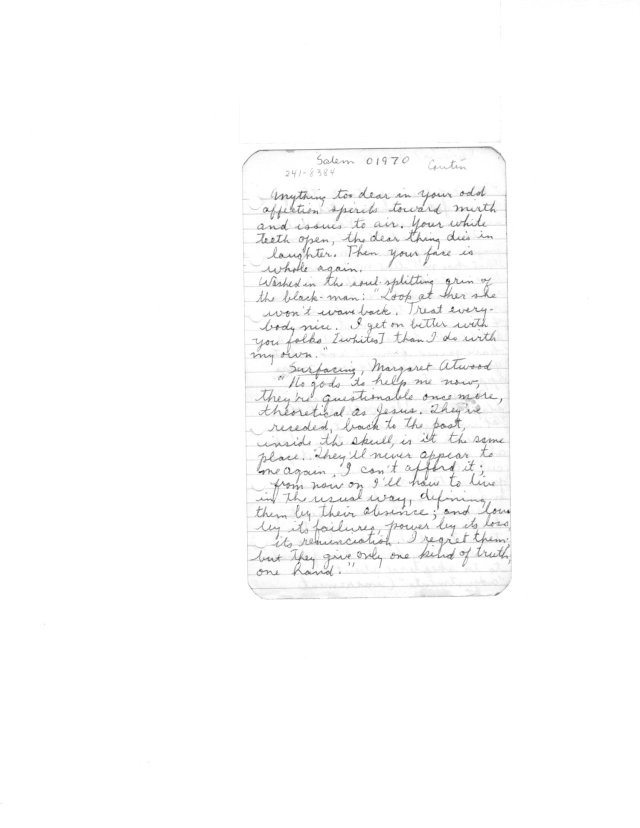 Salem 01970
241-8384
Anything too dear in your odd
affection spirits toward mirth
and issues to air. Your white
teeth open, the dear thing dies in
laughter. Then your face is
whole again.
Washed in the soul-splitting grin of
the black-man: "Look at her she
won't wave back. Treat every-
body nice. I get on better with
you folks [whites] than I do with
my own."
Surfacing, Margaret Atwood
"No gods to help me now,
they're questionable once more,
theoretical as Jesus. They've
receded, back to the past,
inside the skull, is it the same
place. They'll never appear to
me again, I can't afford it;
from now on I'll have to live
in the usual way, defining
them by their absence; and love
by its failures, power by its loss,
its renunciation. I regret them:
but they give only one kind of truth,
one hand."